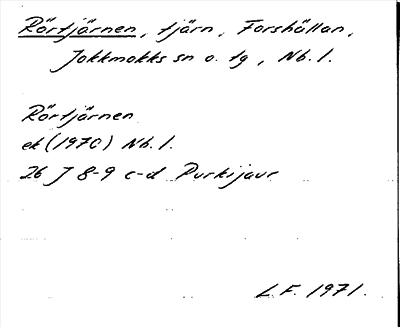 Rörtjärnen, tjärn, Forshällan,
Jokkmokks sn o. tg, Nb. l.
Rörtjärnen
ek (1970) Nb. l.
26 J 8-9 c-d Purkijaur
L.F. 1971.